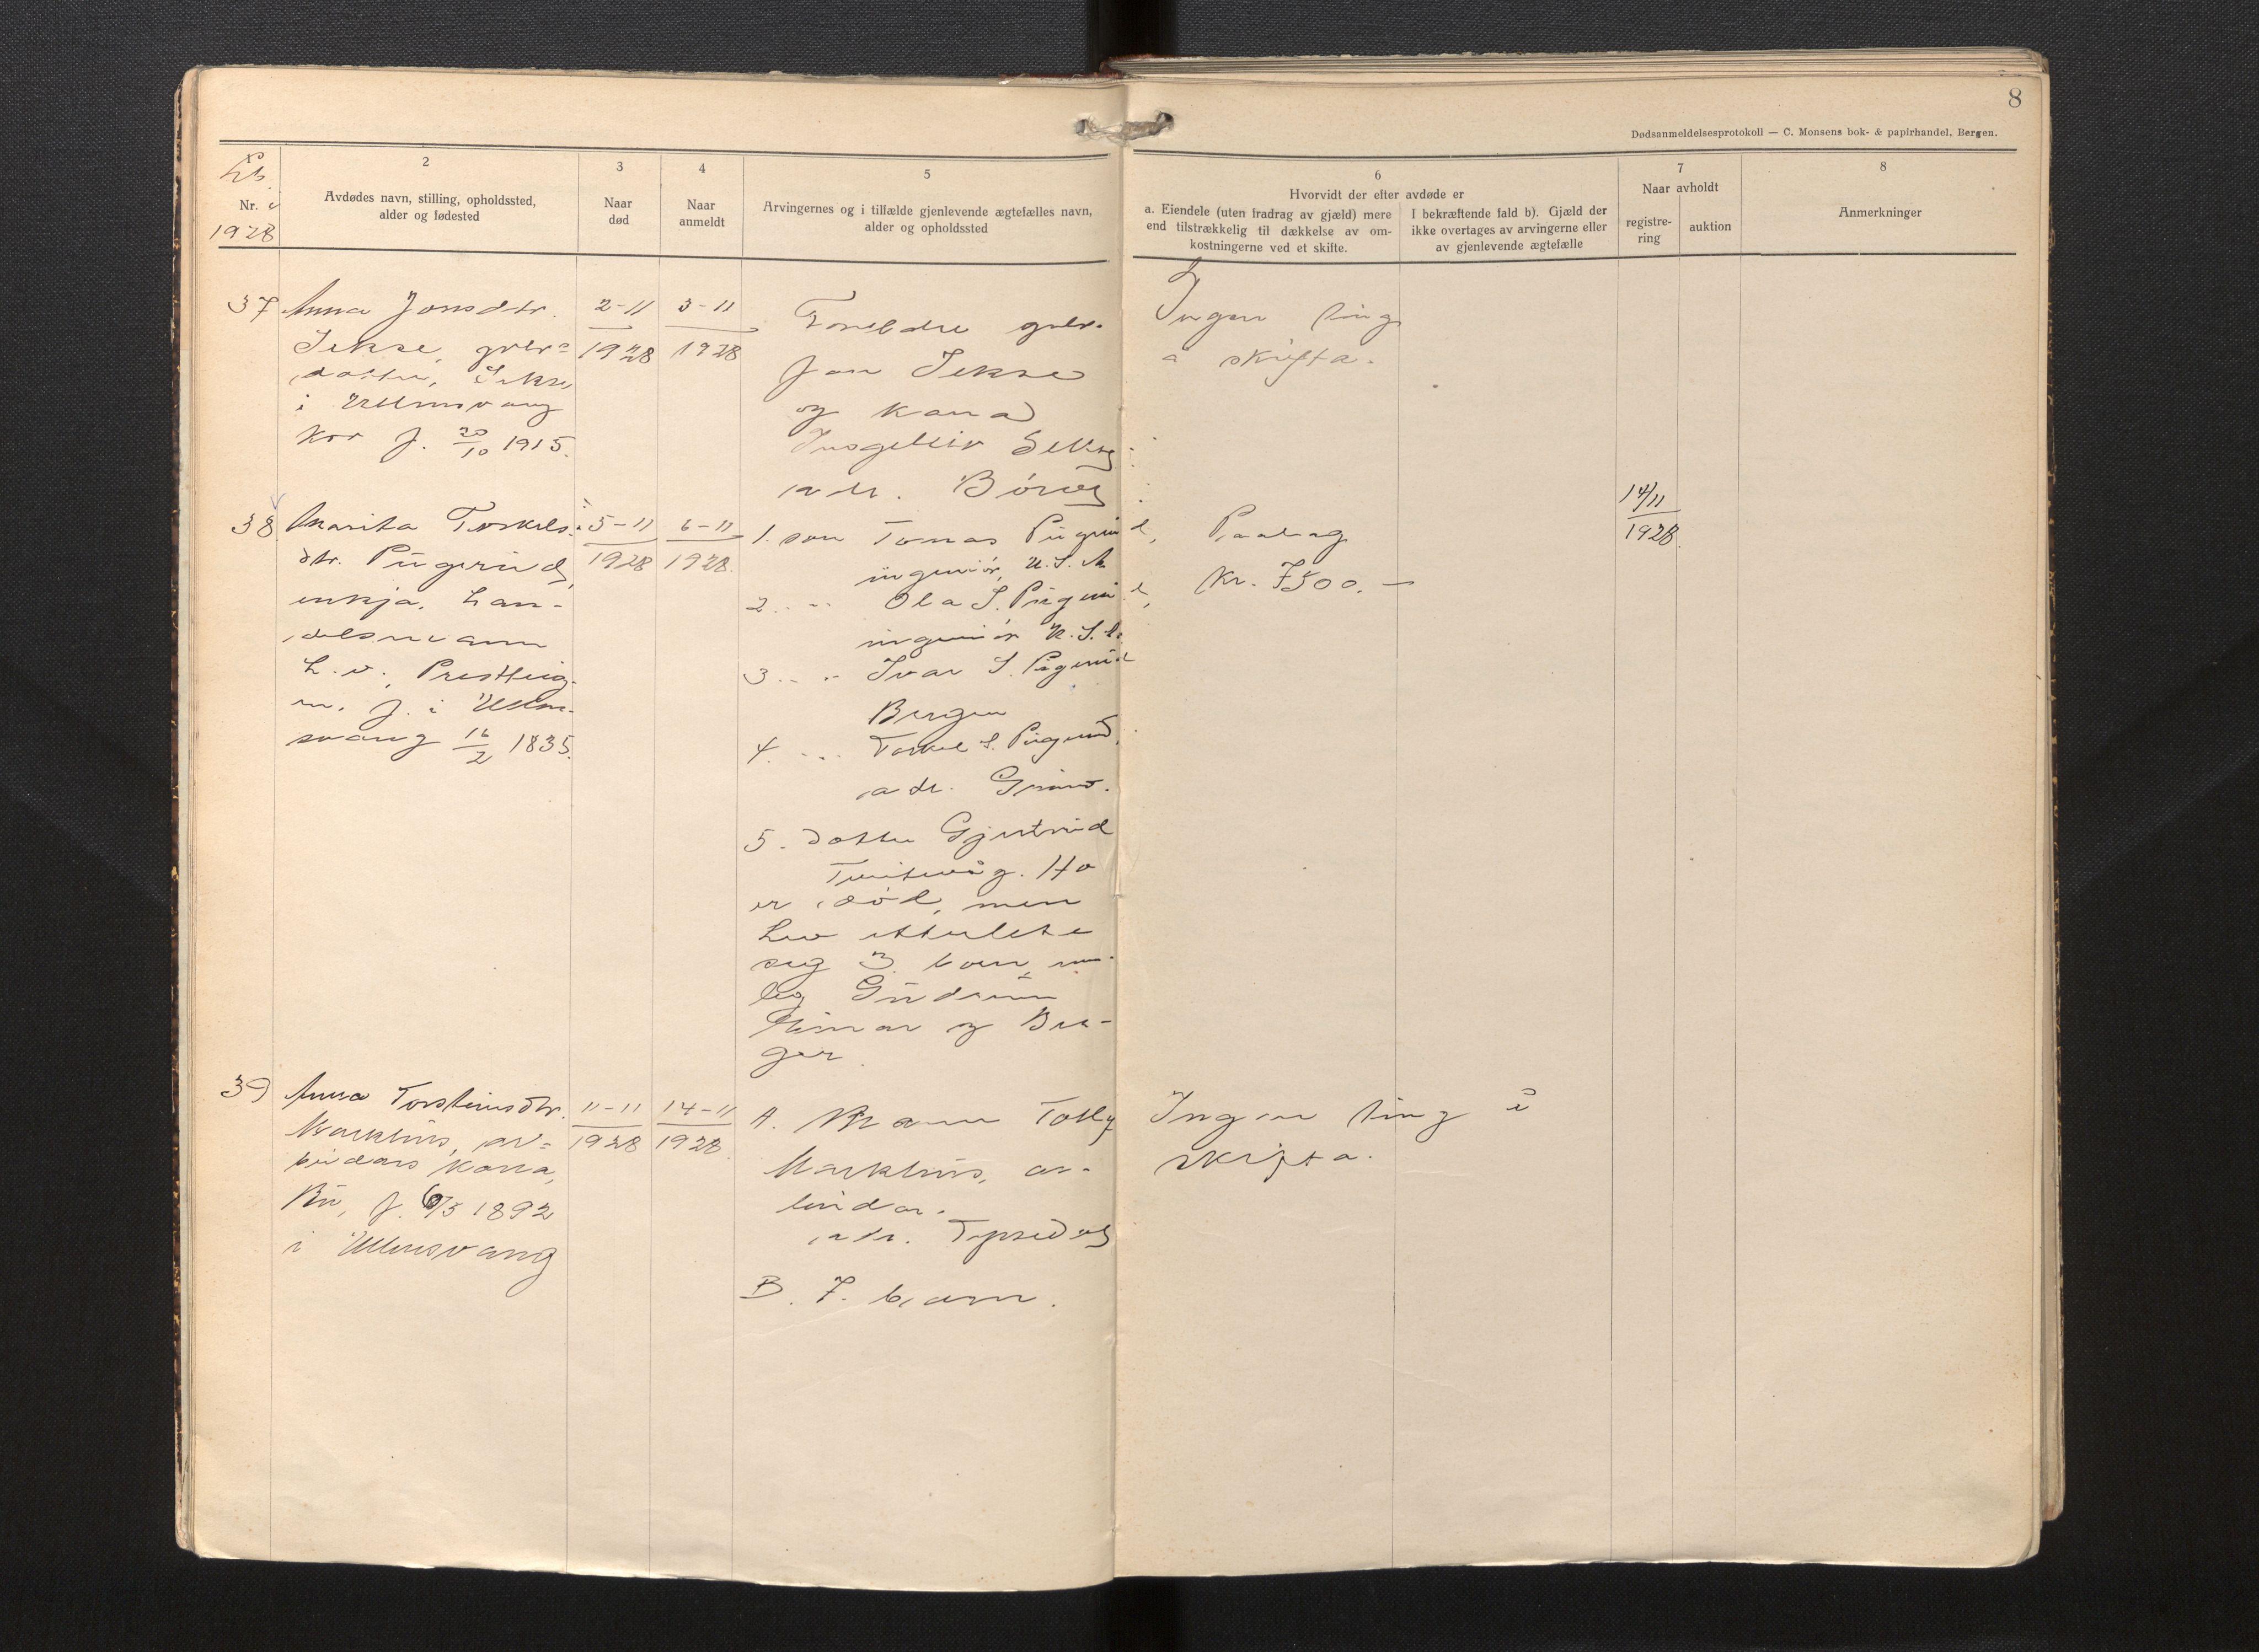 8
Dødsanmeldelsesprotokoll — C. Monsens bok- & papirhandel, Bergen.
1
Lb.
Nr. i
1928
2
Avdødes navn, stilling, opholdssted,
alder og fødested
3
Naar
død
4
Naar
anmeldt
5
Arvingernes og i tilfælde gjenlevende ægtefælles navn,
alder og opholdssted
6
Hvorvidt der efter avdøde er
a. Eiendele (uten fradrag av gjæld) mere
end tilstrækkelig til dækkelse av om-
kostningerne ved et skifte.
I bekræftende fald b). Gjæld der
ikke overtages av arvingerne eller
av gjenlevende ægtefælle
7
Naar avholdt
registre-
ring
auktion
8
Anmerkninger
37
Anna Jonsdtr.
Jekse,
dotter, Jekse
i Ullensvang
f. 20/10 1915.
2-11
1928
3-11
1928
Foreldre
Jon Jekse
og kona
adr. Børve
Ingen ting
å skifta.
38
Marita Torkels-
dtr. Pigerud,
enkja, han-
delsmann
i Ullen-
svang 16/2 1835.
5-11
1928
6-11
1928.
1. son Tomas Pigerud,
ingeniør, U.S.A.
2. Ola S. Pigerud,
ingeniør U.S.A.
3. Ivar S. Pigerud
Bergen
4. Torkel S. Pigerud,
adr. Grimo.
5. Dotter Gjertrud
Ho
er død, men
hev etterlete
seg 3 born, nem-
leg Gudrun
og Bir-
ger.
Paalag
kr. 7500.-
14/11
1928.
39
Anna Torsteinsdtr.
ar-
beidars kona,
Bu, f. 1892
i Ullensvang
11-11
1928
14-11
1928.
A. Mann
ar-
beidar.
adr. Tyssedal
B. 7. born.
Ingen ting å
skifta.